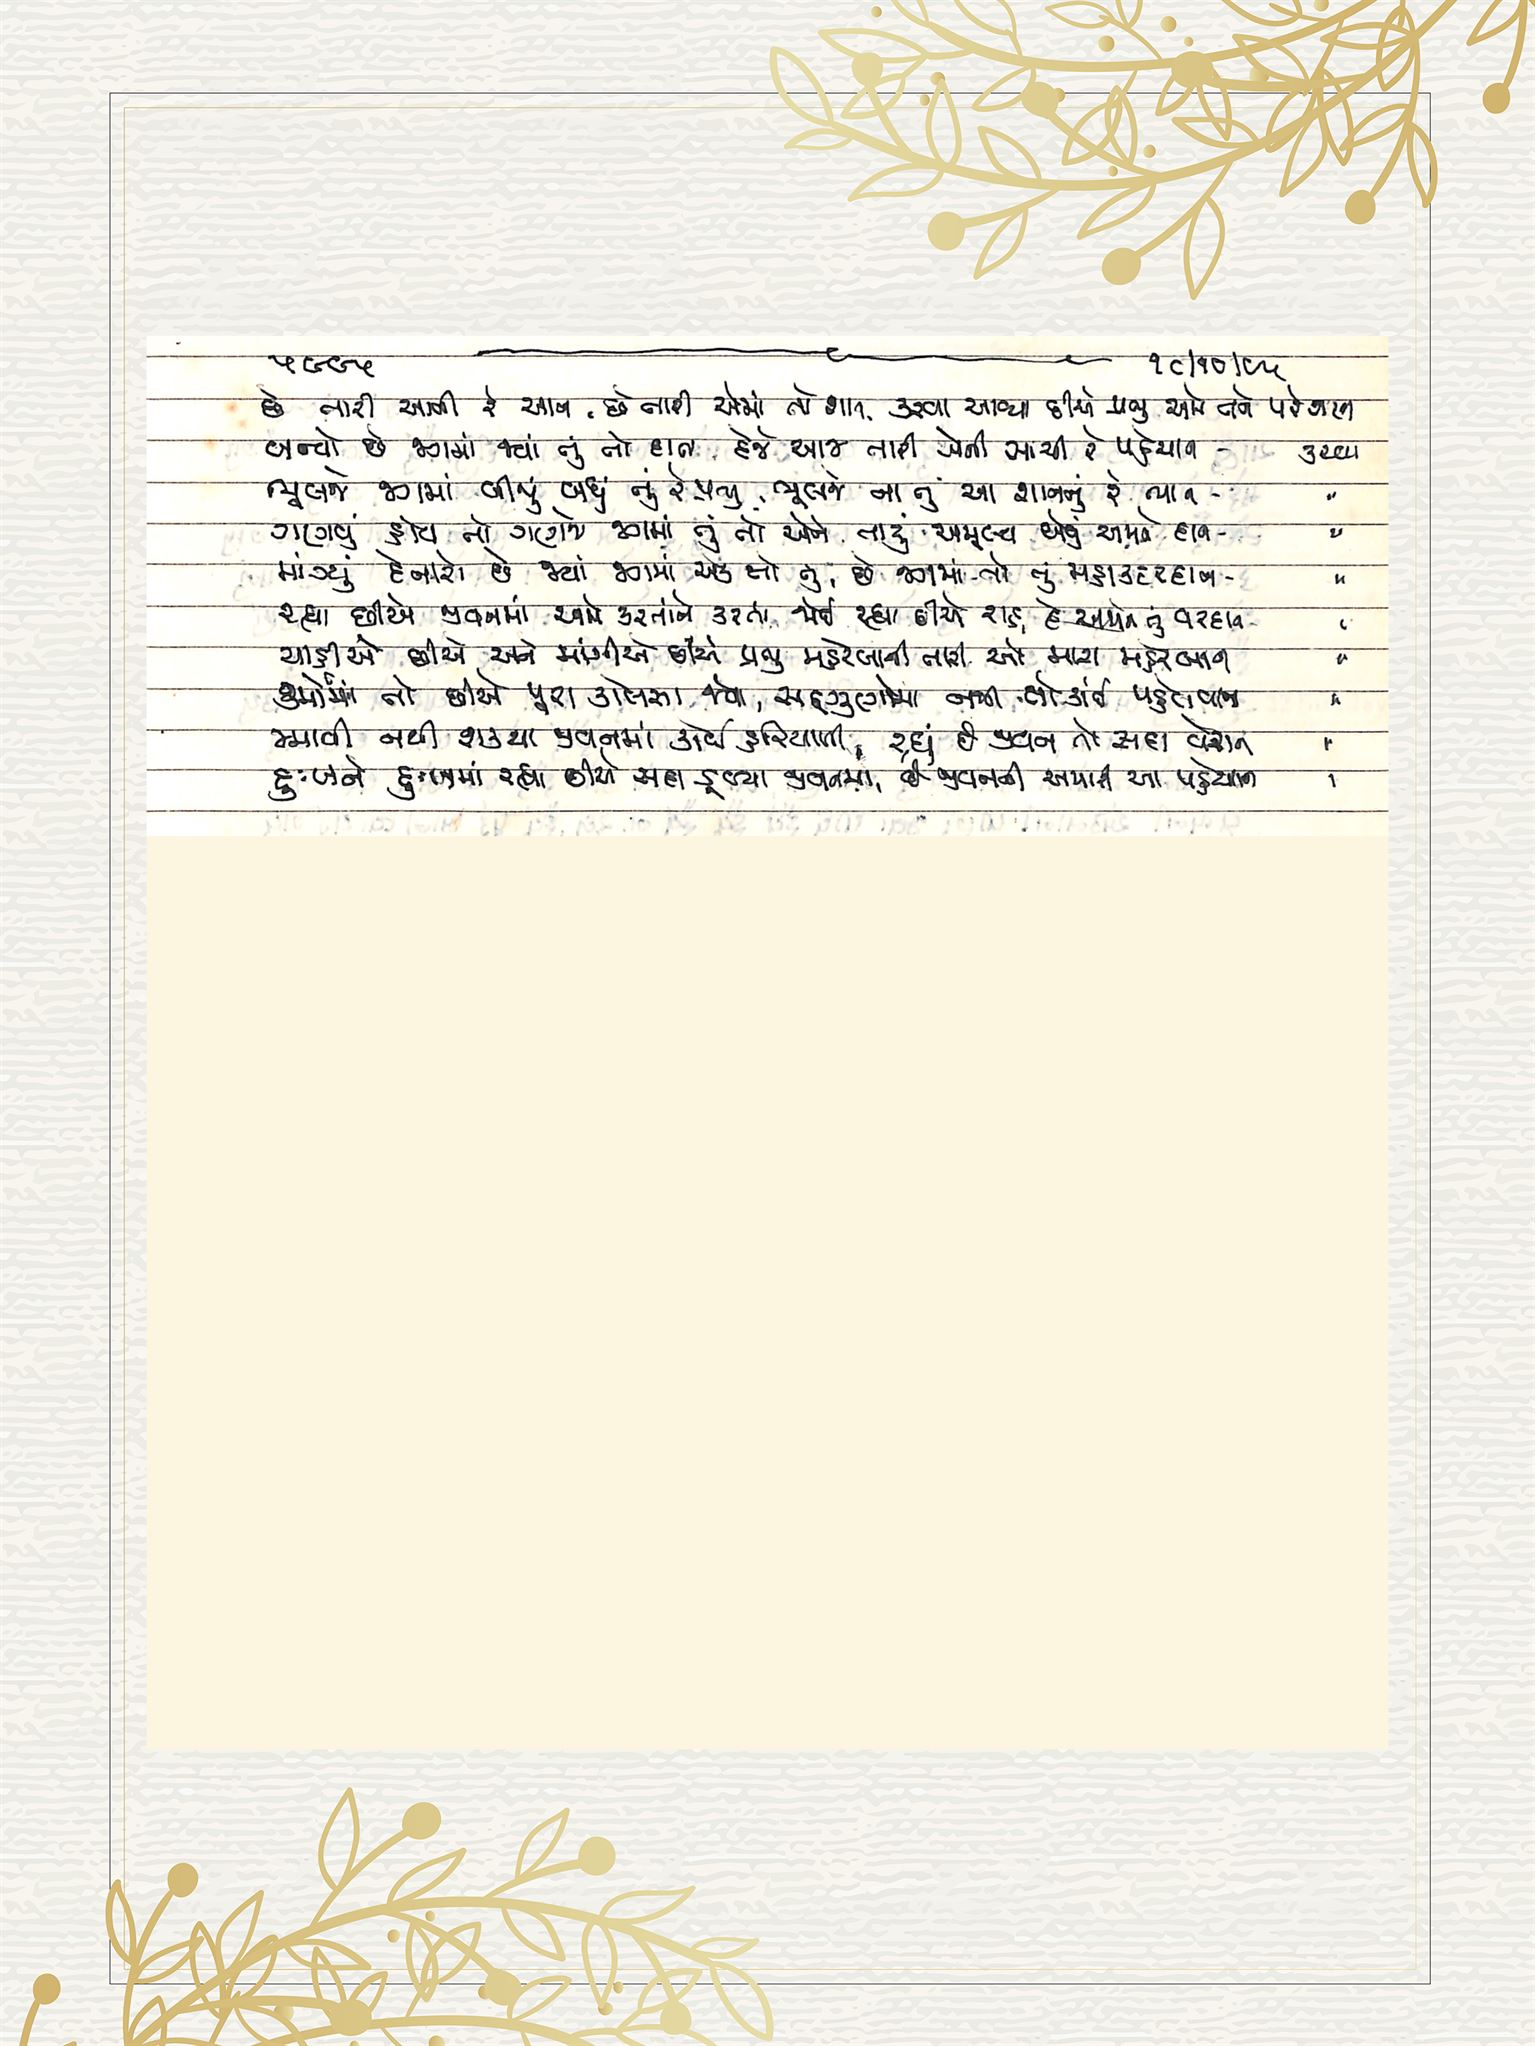 ૫૯૯૫ ૧૮/૧૦/૯૫
છે તારી આની રે આન, છે તારી એમાં તો શાન, કરવા આવ્યા છીએ પ્રભુ અમે તને પરેશાન
બન્યો છે જગમાં જ્યાં તું તો દાન, દેજે આજ તારી એની સાચી રે પહેચાન - કરવા
ભૂલજે જગમાં બીજું બધું તું રે પ્રભુ, ભૂલજે ના તું આ શાનનું રે ભાન - "
ગણવું હોય તો ગણજે જગમાં તું તો એને, તારું અમૂલ્ય એવું અમને દાન - "
માંગ્યું દેનારો છે જ્યાં જગમાં એક તો તું, છે જગમાં તો તું મહાકદરદાન - "
રહ્યા છીએ જીવનમાં અમે કરતાંને કરતા, જોઈ રહ્યા છીએ રાહ, દે અમને તું વરદાન - "
ચાહીએ છીએ અને માંગીએ છીએ પ્રભુ મહેરબાની તારી ઓ મારા મહેરબાન "
તો છીએ પૂરા જેવા, સદ્ગુણોમાં નથી કોઈ પહેલવાન "
આવી નથી શક્યા જીવનમાં કોઈ હરિયાળી, રહ્યું છે જીવન તો સદા વેરાન "
દુઃખને દુઃખમાં રહ્યા છીએ સદા ડૂબ્યા જીવનમાં, છે જીવનની અમારી આ પહેચાન "